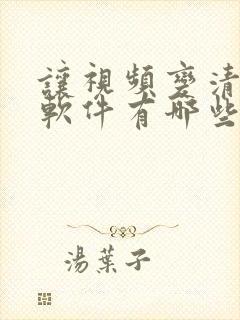 讓視頻變清
軟件有哪些
湯葉子